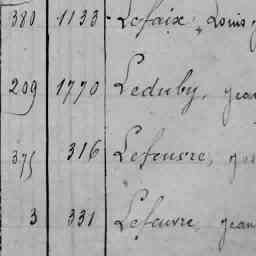 380 1133 Lefaix, Louis
209 1770 Leduby, Jean
375 316 Lefeuvre,
3 331 Lefeuvre, Jean